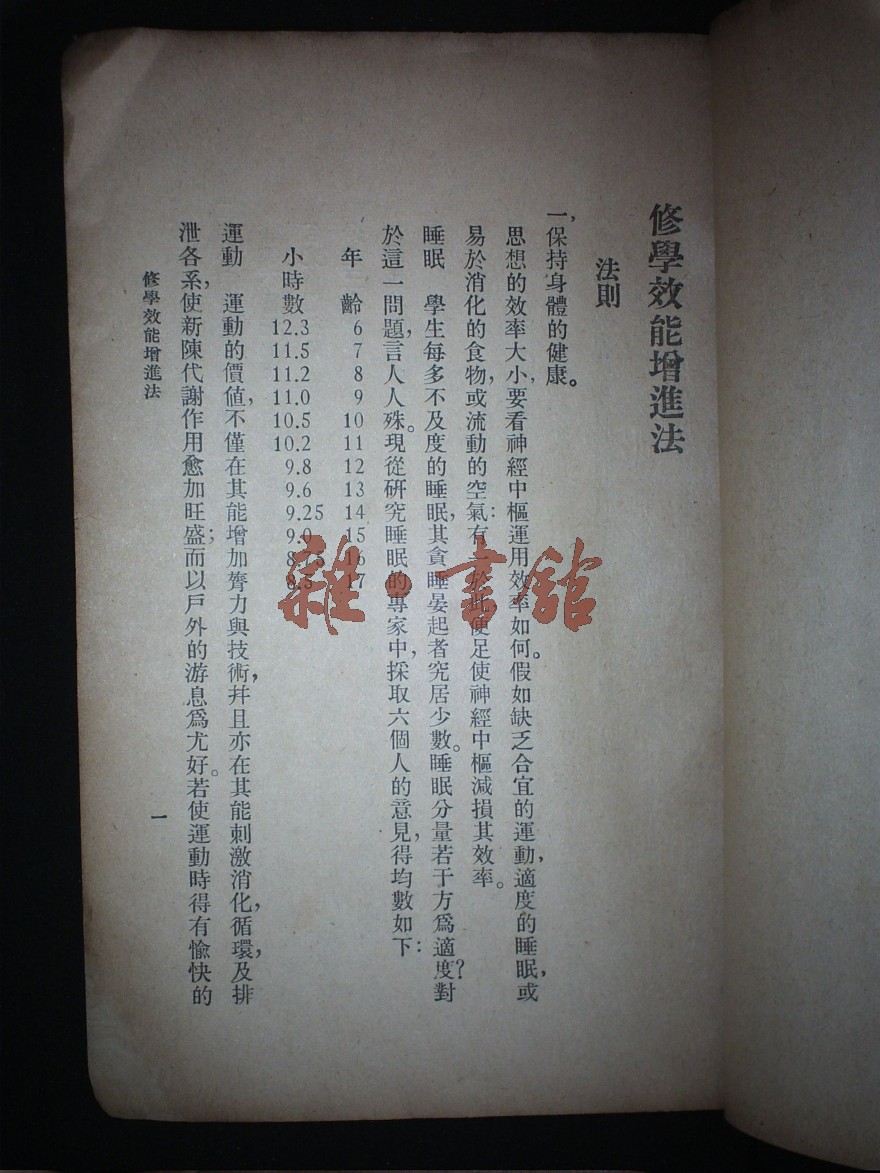 修學效能增進法
法則
一,保持身體的健康。
思想的效率大小,要看神經中樞運用效率如何。假如缺乏合宜的運動,適度的睡眠,或
易於消化的食物,或流動的空氣:有一於此,便足使神經中樞減損其效率。
睡眠 學生每多不及度的睡眠,其貪睡晏起者究居少數。睡眠分量若干方爲適度?對
於這一問題,言人人殊。現從研究睡眠的專家中,採取六個人的意見,得均數如下:
年齡 6 7 8 9 10 11 12 13 14 15 16 17
小時數 12.3 11.5 11.2 11.0 10.5 10.2 9.8 9.6 9.25 9.0
運動 運動的價值,不僅在其能增加膂力與技術,幷且亦在其能刺激消化,循環,及排
泄各系,使新陳代謝作用愈加旺盛;而以戶外的游息爲尤好。若使運動時得有愉快的
修學效能增進法
一
雜·書館